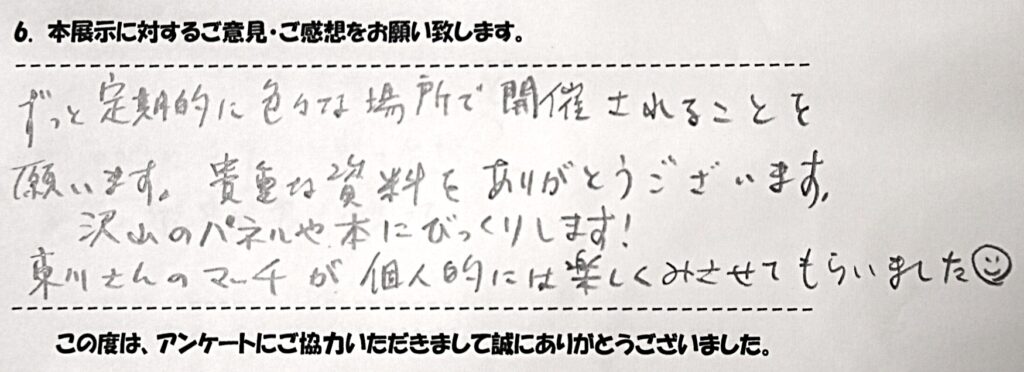 6. 本展示に対するご意見・ご感想をお願い致します。
ずっと定期的に色々な場所で開催されることを
願います。貴重な資料をありがとうございます。
沢山のパネルや本にびっくりします!
東川さんのマーチが個人的には楽しくみさせてもらいました
この度は、アンケートにご協力いただきまして誠にありがとうございました。